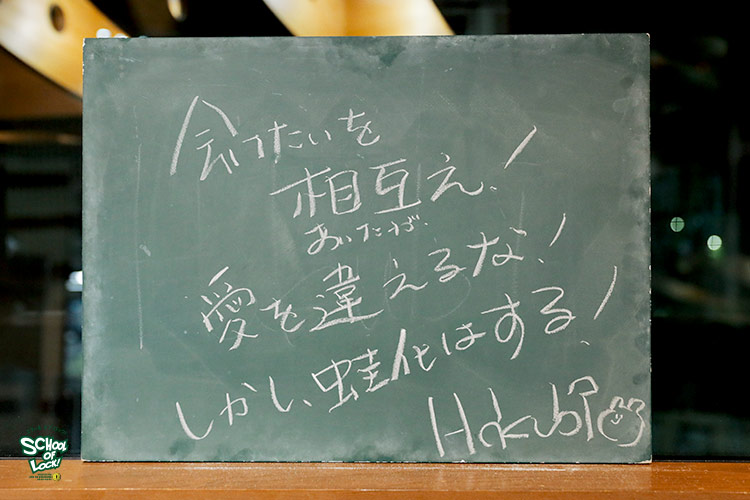 会いたいを
相互え!
あいたがえ
愛を違えるな!
しかし、蛙化はする!
SCHOOL
OF
LOCK!